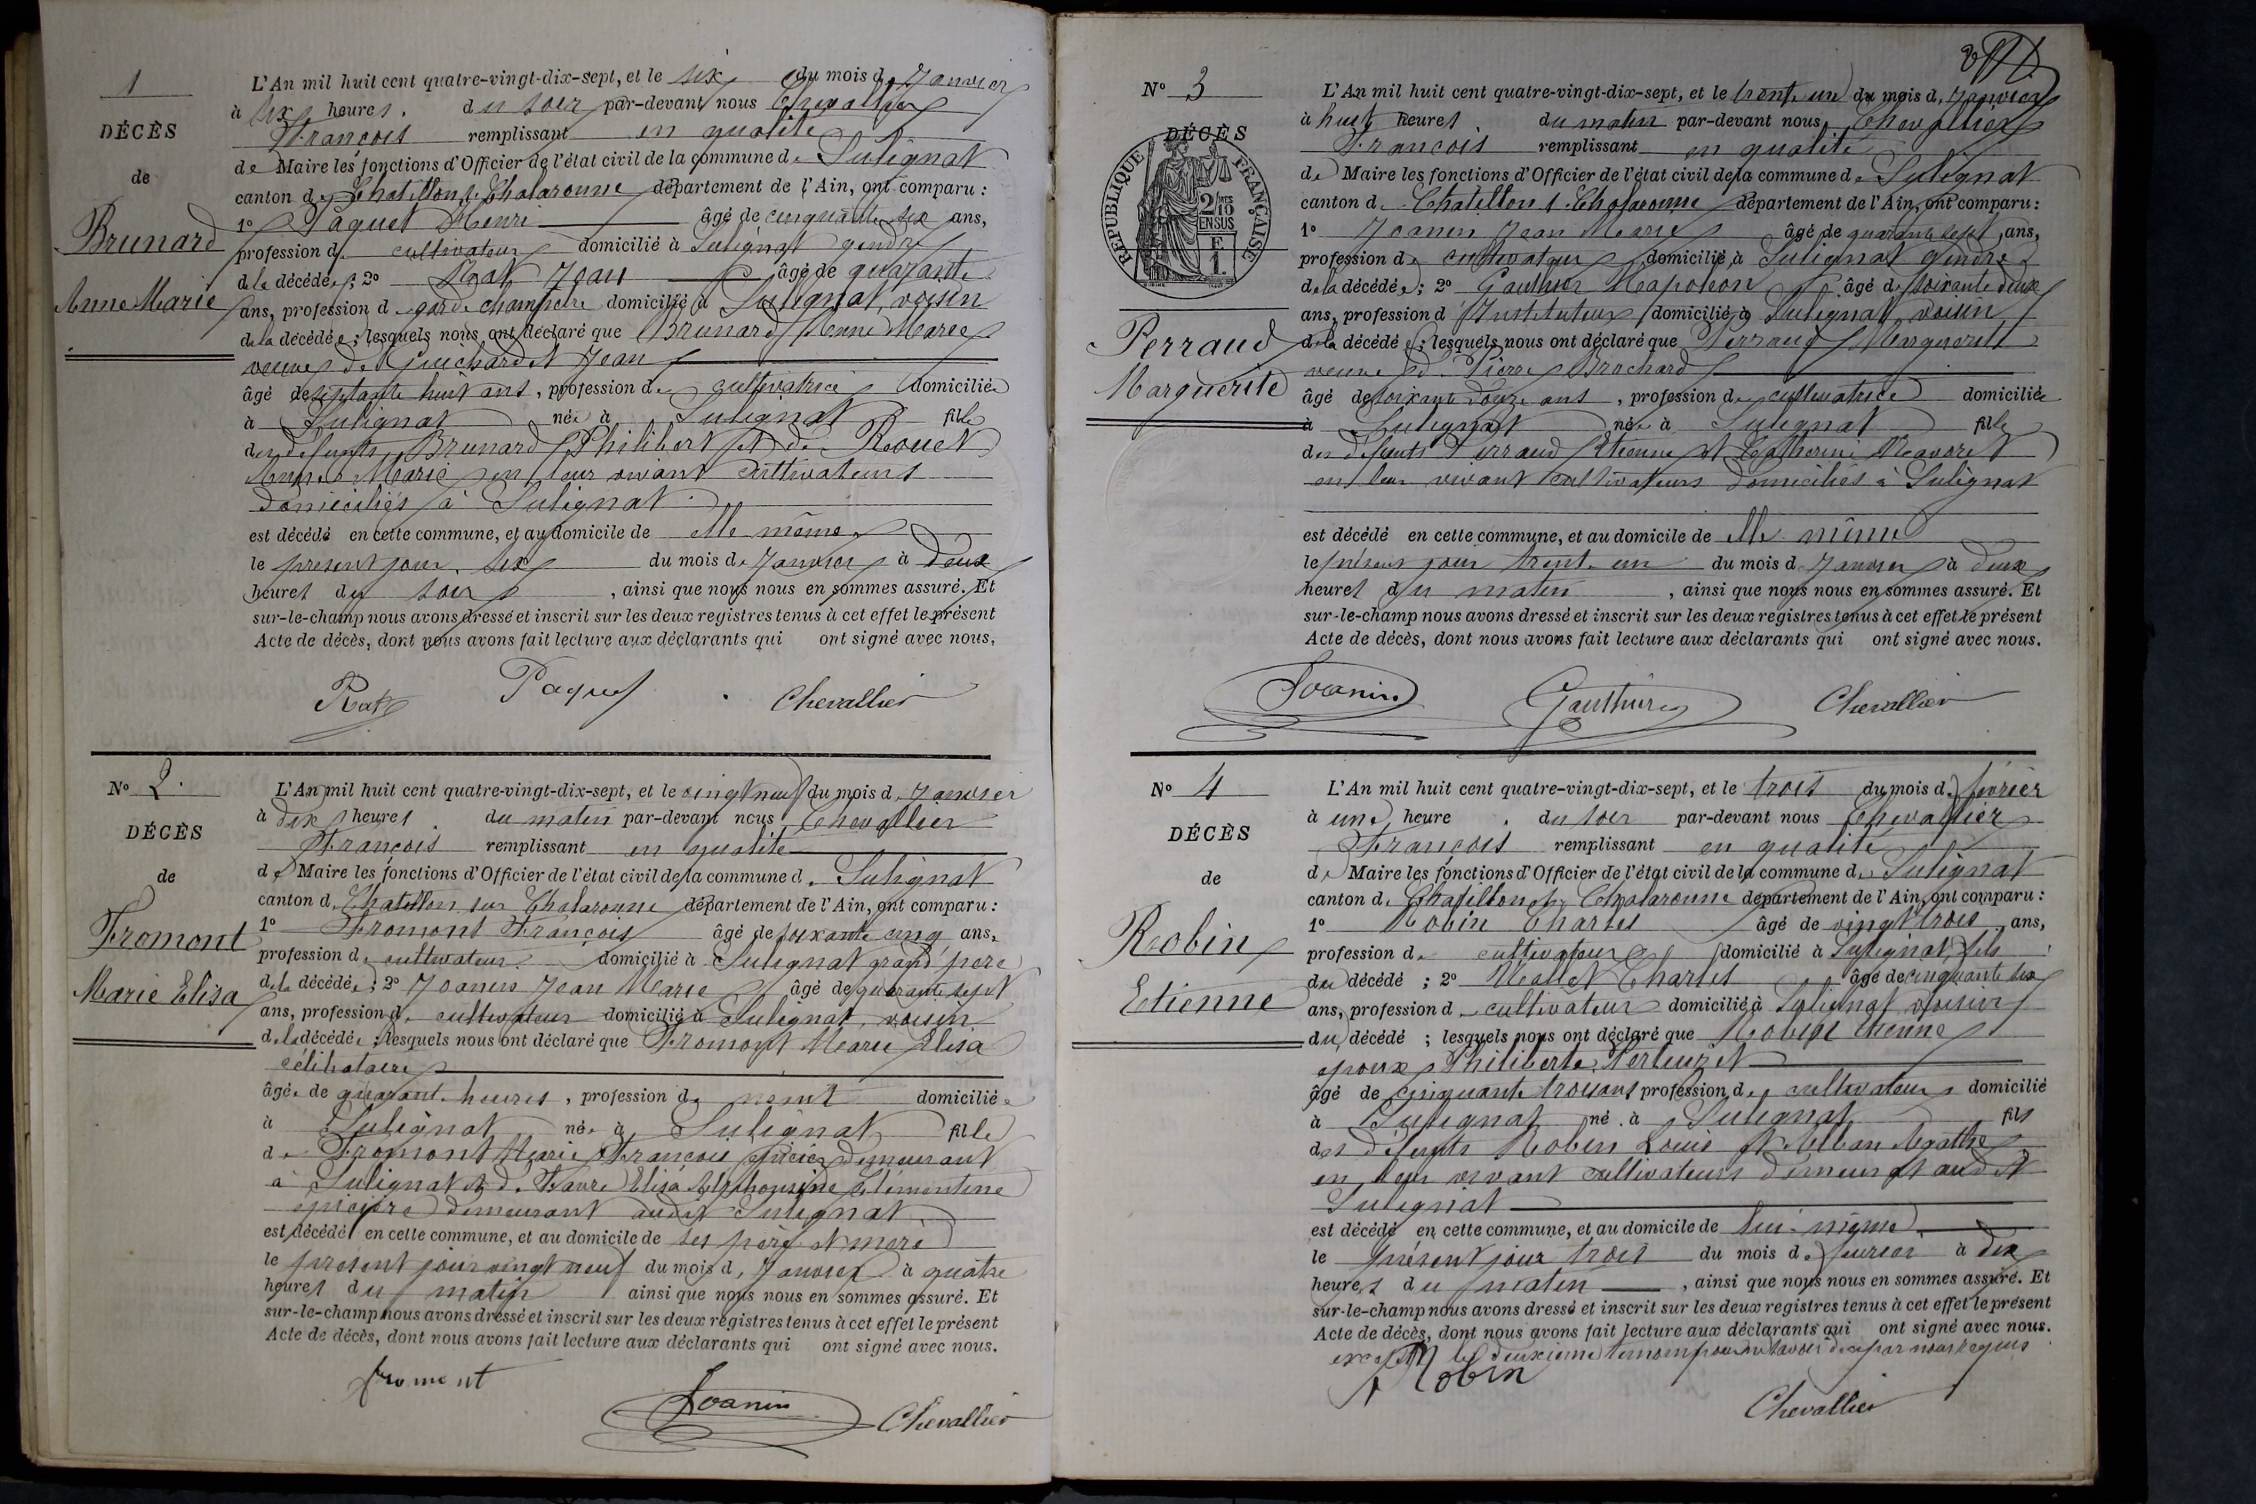 1
DÉCÈS
de
Brunard
Anne Marie
L'An mil huit cent quatre-vingt-dix-sept, et le six du mois de Janvier
à six heures du soir par-devant nous Chevallier
François remplissant en qualité
de Maire les fonctions d'Officier de l'état civil de la commune de Sulignat
canton de Chatillon s. Chalaronne département de l'Ain, ont comparu :
1° Paquet Henri âgé de cinquante six ans,
profession de cultivateur domicilié à Sulignat gendre
de la décédée ; 2° Rat Jean âgé de quarante
ans, profession de garde champetre domicilié à Sulignat, voisin
de la décédée ; lesquels nous ont déclaré que Brunard Anne Marie
veuve de Guichardet Jean
âgé de septante huit ans, profession de cultivatrice domiciliée
à Sulignat née à Sulignat fille
des défunts Brunard Philibert et de Rouet
Anne Marie en leur vivant cultivateurs
domiciliés à Sulignat
est décédé en cette commune, et au domicile de elle même
le présent jour six du mois de Janvier à deux
heures du soir, ainsi que nous nous en sommes assuré. Et
sur-le-champ nous avons dressé et inscrit sur les deux registres tenus à cet effet le présent
Acte de décès, dont nous avons fait lecture aux déclarants qui ont signé avec nous.
Rat Paquet Chevallier
N° 2.
DÉCÈS
de
Fromont
Marie Elisa
L'An mil huit cent quatre-vingt-dix-sept, et le vingt neuf du mois d. Janvier
à dix heures du matin par-devant nous Chevallier
François remplissant en qualité
de Maire les fonctions d'Officier de l'état civil de la commune d. Sulignat
canton d. Chatillon sur Chalaronne département de l'Ain, ont comparu :
1° Fromont François âgé de soixante cinq ans,
profession de cultivateur domicilié à Sulignat grand père
de la décédée ; 2° Joanin Jean Marie âgé de quarante sept
ans, profession de cultivateur domicilié à Sulignat, voisin
de la décédée ; lesquels nous ont déclaré que Fromont Marie Elisa
célibataire
âgée de quarante heures, profession de néant domiciliée
à Sulignat née à Sulignat fille
de Fromont Marie François épicier demeurant
à Sulignat et d. Favre Elisa Alphonsine Clémentine
épicière demeurant audit Sulignat
est décédé en cette commune, et au domicile de ses père et mère
le présent jour vingt neuf du mois d. Janvier à quatre
heures du matin ainsi que nous nous en sommes assuré. Et
sur-le-champ nous avons dressé et inscrit sur les deux registres tenus à cet effet le présent
Acte de décès, dont nous avons fait lecture aux déclarants qui ont signé avec nous.
fromont
Joanin Chevallier
N° 3
DÉCÈS
REPUBLIQUE FRANÇAISE
2/10 EN SUS
F 1.
Perraud
Marguerite
L'An mil huit cent quatre-vingt-dix-sept, et le trente un du mois d. Janvier
à huit heures du matin par-devant nous Chevallier
François remplissant en qualité
de Maire les fonctions d'Officier de l'état civil de la commune de Sulignat
canton d. Chatillon s. Chalaronne département de l'Ain, ont comparu :
1° Joanin Jean Marie âgé de quarante sept ans,
profession de cultivateur domicilié à Sulignat gendre
de la décédée ; 2° Gauthier Napoleon âgé de soixante deux
ans, profession d'Instituteur domicilié à Sulignat, voisin
de la décédée ; lesquels nous ont déclaré que Perraud Marguerite
veuve d. Pierre Brochard
âgé de soixante douze ans, profession de cultivatrice domiciliée
à Sulignat née à Sulignat fille
des défunts Perraud Etienne et Catherine
en leur vivant cultivateurs domiciliés à Sulignat
est décédé en cette commune, et au domicile de elle même
le présent jour trente un du mois d. Janvier à deux
heures du matin, ainsi que nous nous en sommes assuré. Et
sur-le-champ nous avons dressé et inscrit sur les deux registres tenus à cet effet le présent
Acte de décès, dont nous avons fait lecture aux déclarants qui ont signé avec nous.
Joanin Gauthier Chevallier
N° 4
DÉCÈS
de
Robin
Etienne
L'An mil huit cent quatre-vingt-dix-sept, et le trois du mois de février
à une heure du soir par-devant nous Chevallier
François remplissant en qualité
de Maire les fonctions d'Officier de l'état civil de la commune de Sulignat
canton de Chatillon s. Chalaronne département de l'Ain, ont comparu :
1° Robin Charles âgé de vingt trois ans,
profession de cultivateur domicilié à Sulignat, fils
du décédé ; 2° Mallet Charles âgé de cinquante six
ans, profession de cultivateur domicilié à Sulignat voisin
du décédé ; lesquels nous ont déclaré que Robin Etienne
époux Philiberte
âgé de cinquante trois ans profession de cultivateur domicilié
à Sulignat né à Sulignat fils
des défunts Robin Louis et Alban Agathe
en leur vivant cultivateurs demeurant audit
Sulignat
est décédé en cette commune, et au domicile de lui-même
le présent jour trois du mois de février à dix
heures du matin, ainsi que nous nous en sommes assuré. Et
sur-le-champ nous avons dressé et inscrit sur les deux registres tenus à cet effet le présent
Acte de décès, dont nous avons fait lecture aux déclarants qui ont signé avec nous.
excepté le deuxième témoin pour ne savoir de ce par nous requis
Robin
Chevallier